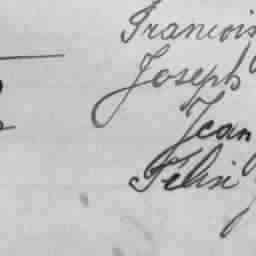 Francois
Joseph
Jean
Felix